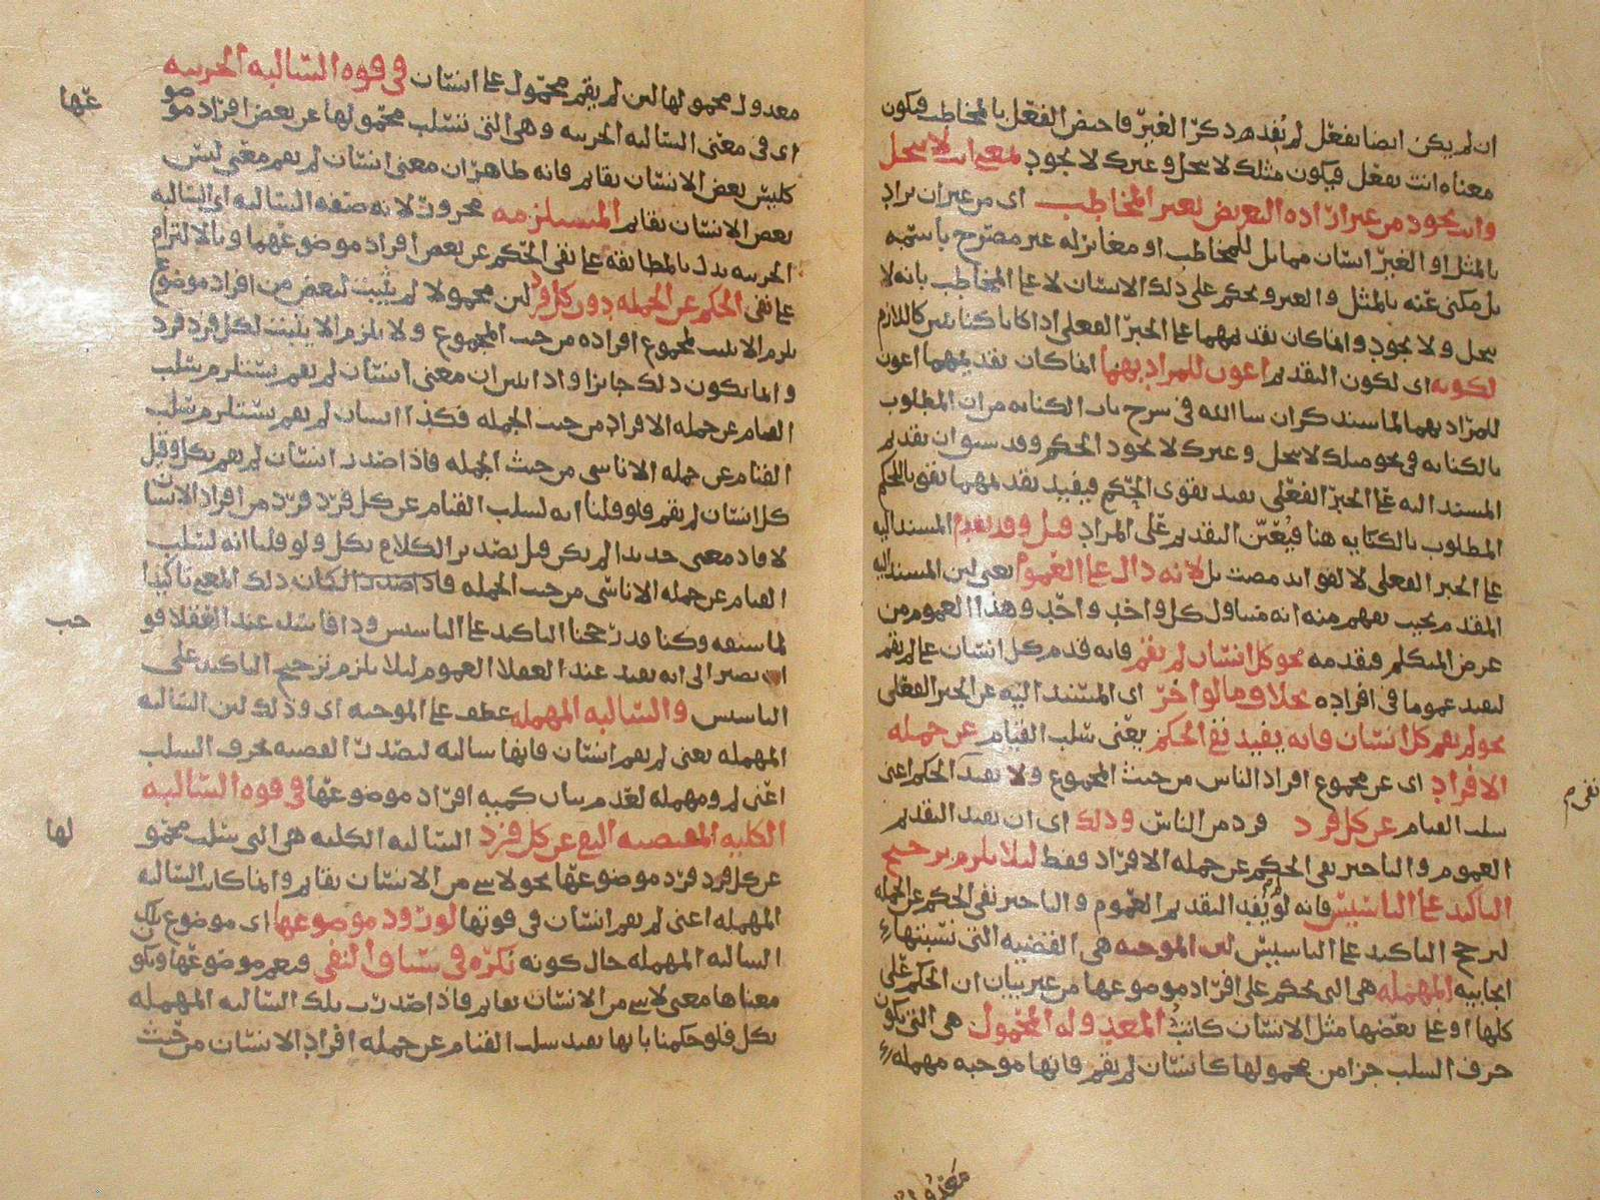 ان لم يكن ايضا يفعل لم يُقدم ذكر الغير فاختص الفعل بالمخاطب فيكون
معناه انت تفعل فيكون مثلك لا يبخل وغيرك لا يجود بمعنى انت لا تبخل
وانت تجود من غير ارادة التعريض بغير المخاطب اى من غير ان يراد
بالمثل او الغير انسان مماثل للمخاطب او مغاير له غير مصرح باسمه
بل مكنى عنه بالمثل والغير ويحكم على ذلك الانسان لا على المخاطب بانه لا
يبخل ولا يجود وانما كان تقديمهما على الخبر الفعلى اذا كانا كنايتين كاللازم
لكونه اى لكون التقديم اعون للمراد بهما انما كان تقديمهما اعون
للمراد بهما لما سيذكر ان شا الله فى شرح باب الكناية من ان المطلوب
بالكناية فى نحو مثلك لا يبخل وغيرك لا يجود الحكم وقد سبق ان تقديم
المسند اليه على الخبر الفعلى يفيد تقوى الحكم فيفيد تقديمهما تقوى الحكم
المطلوب بالكناية هنا فيُعيّن التقديم على المراد قيل وقد يقدم المسند اليه
على الخبر الفعلى لا لفوائد مضت بل لانه دال على العموم يعنى لان المسند اليه
المقدم بحيث يفهم منه انه متناول كل واحد واحد وهذا العموم من
غرض المتكلم فيقدمه نحو كل انسان لم يقم فانه قدم كل انسان على لم يقم
ليفيد عموما فى افراده بخلاف ما لو اخر اى المسند اليه عن الخبر الفعلى
نحو لم يقم كل انسان فانه يفيد نفى الحكم يعنى سلب القيام عن جملة
الافراد اى عن مجموع افراد الناس من حيث المجموع ولا يفيد الحكم اعنى
سلب القيام عن كل فرد فرد من الناس وذلك اى ان يفيد التقديم
العموم والتاخير نفى الحكم عن جملة الافراد فقط لئلا يلزم ترجيح
التاكيد على التاسيس فانه لو يُفِد التقديم العموم والتاخير نفى الحكم عن الجملة
لترجح التاكيد على التاسيس لان الموجبة هى القضية التى نسبتها
ايجابية المهملة هى التى يحكم على افراد موضوعها من غير بيان ان الحكم على
كلها او على بعضها مثل الانسان كاتب المعدولة المحمول هى التى يكون
حرف السلب جزا من محمولها كانسان لم يقم فانها موجبة مهملة
معدول محمولها لان لم يقم محمول على انسان فى قوة السالبة الجزئية
اى فى معنى السالبة الجزئية وهى التى تسلب محمولها عن بعض افراد موضو
عها
كليس بعض الانسان بقائم فانه ظاهر ان معنى انسان لم يقم معنى ليس
بعض الانسان بقائم المستلزمة مجرور لانه صفة السالبة اى السالبة
الجزئية تدل بالمطابقة على نفى الحكم عن بعض افراد موضوعها وبالالتزام
على نفى الحكم عن الجملة دون كل فرد لان محمولا لم يثبت لبعض من افراد موضوع
يلزم الا يثبت لمجموع افراده من حيث المجموع ولا يلزم الا يثبت لكل فرد فرد
وانما يكون ذلك جايزا واذا تبين ان معنى انسان لم يقم يستلزم سلب
القيام عن جملة الافراد من حيث الجملة فكذا انسان لم يقم يستلزم سلب
القيام عن جملة الاناسى من حيث الجملة فاذا صدر انسان لم يقم بكل وقيل
كل انسان لم يقم فلو قلنا انه لسلب القيام عن كل فرد فرد من افراد الانسان
لافاد معنى جديدا لم يكن قبل تصدير الكلام بكل ولو قلنا انه لسلب
القيام عن جملة الاناسى من حيث الجملة لكان ذلك المعنى تاكيدا
لما سبقه وكنا قد رجحنا التاكيد على التاسيس وذا فاسد عند العقلا فو
جب
المصير الى انه يفيد عند العقلا العموم لئلا يلزم ترجيح التاكيد على
التاسيس والسالبة المهملة عطف على الموجبة اى وذلك لان السالبة
المهملة يعنى لم يقم انسان فانها سالبة لتصدر القضية بحرف السلب
اعنى لم ومهملة لعدم بيان كمية افراد موضوعها فى قوة السالبة
الكلية المقتضية النفى عن كل فرد السالبة الكلية هى التى سلب محمو
لها
عن كل فرد فرد موضوعها نحو لا شى من الانسان بقائم وانما كانت السالبة
المهملة اعنى لم يقم انسان فى قوتها لورود موضوعها اى موضوع تلك
السالبة المهملة حال كونه نكرة فى سياق النفى فيعم موضوعها ويكون
معناها معنى لا شى من الانسان بقائم فاذا صدرت تلك السالبة المهملة
بكل فلو حكمنا بانها تفيد سلب القيام عن جملة افراد الانسان من حيث